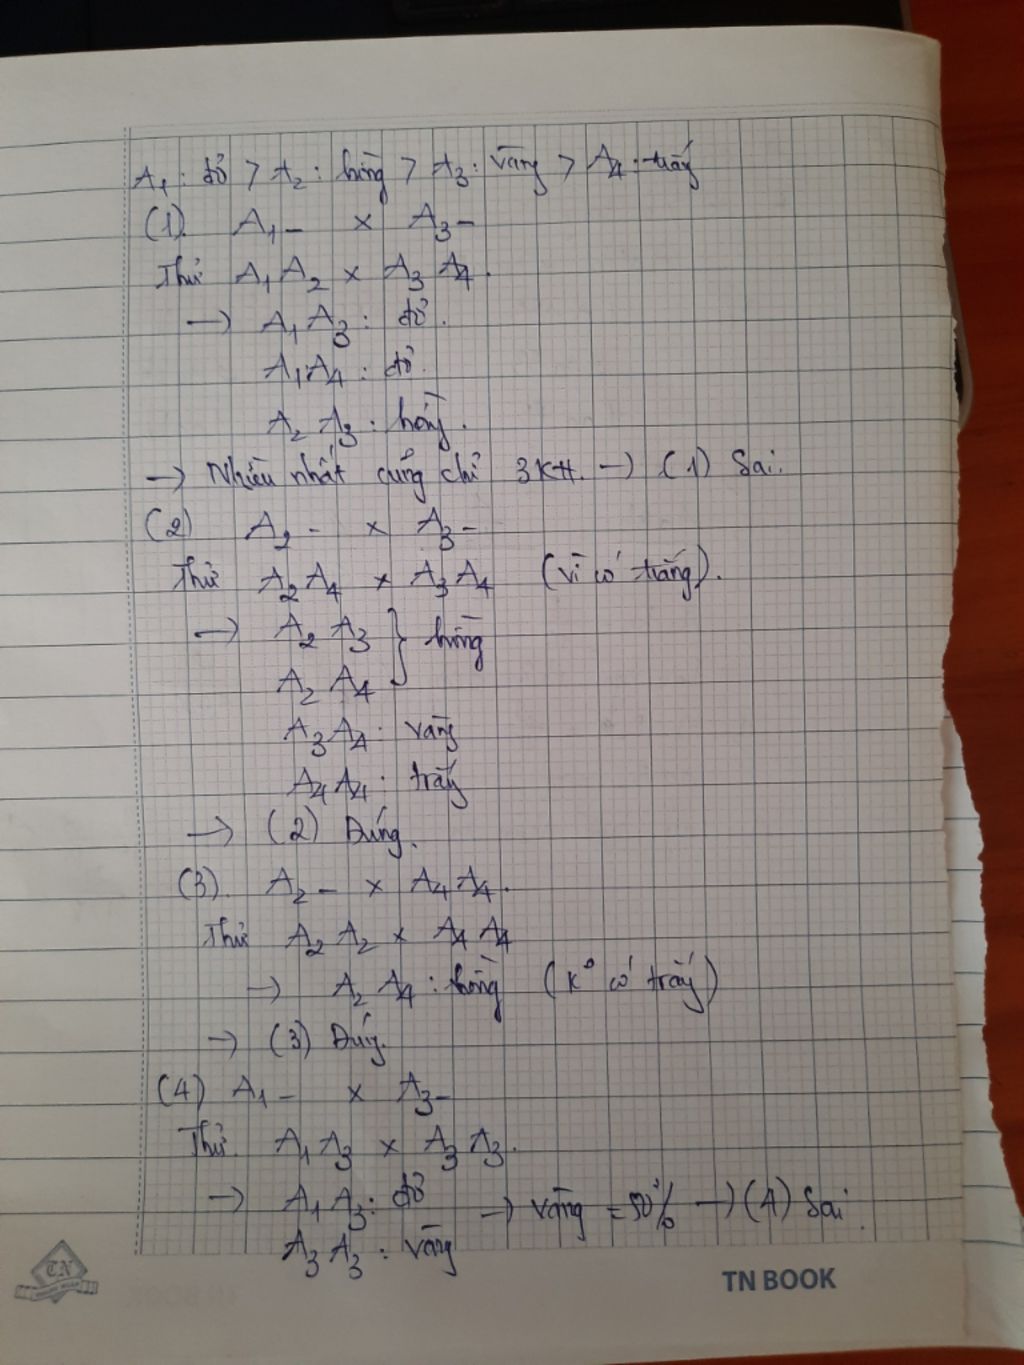 A₁: đỏ > A₂: hồng > A₃: vàng > A₄: trắng
(1). A₁ – × A₃ –
Thử A₁A₂ × A₃A₄.
→ A₁A₃: đỏ.
A₁A₄: đỏ.
A₂A₃: hồng.
→ Nhiều nhất cũng chỉ 3 KH. → (1) Sai.
(2) A₂ – × A₃ –
Thử A₂A₄ × A₃A₄ (vì có trắng).
→ A₂A₃ } hồng
A₂A₄
A₃A₄: vàng
A₄A₄: trắng
→ (2) Đúng.
(3). A₂ – × A₄A₄.
Thử A₂A₂ × A₄A₄
→ A₂A₄: hồng (K° có trắng)
→ (3) Đúng.
(4) A₁ – × A₃ –
Thử. A₁A₃ × A₃A₃.
→ A₁A₃: đỏ → vàng = 50% → (4) Sai.
A₃A₃: vàng
TN
TN BOOK